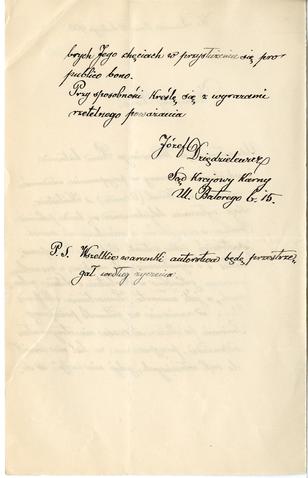 brych Jego chęciach w przysłużeniu się pro
publico bono.
Przy sposobności kreślę się z wyrazami
rzetelnego poważania
Józef Dzędzielewicz
Sąd Krajowy Karny
Ul. Batorego l. 16.
P. S. Wszelkie warunki autorstwa będę przestrze,
gał według życzenia.